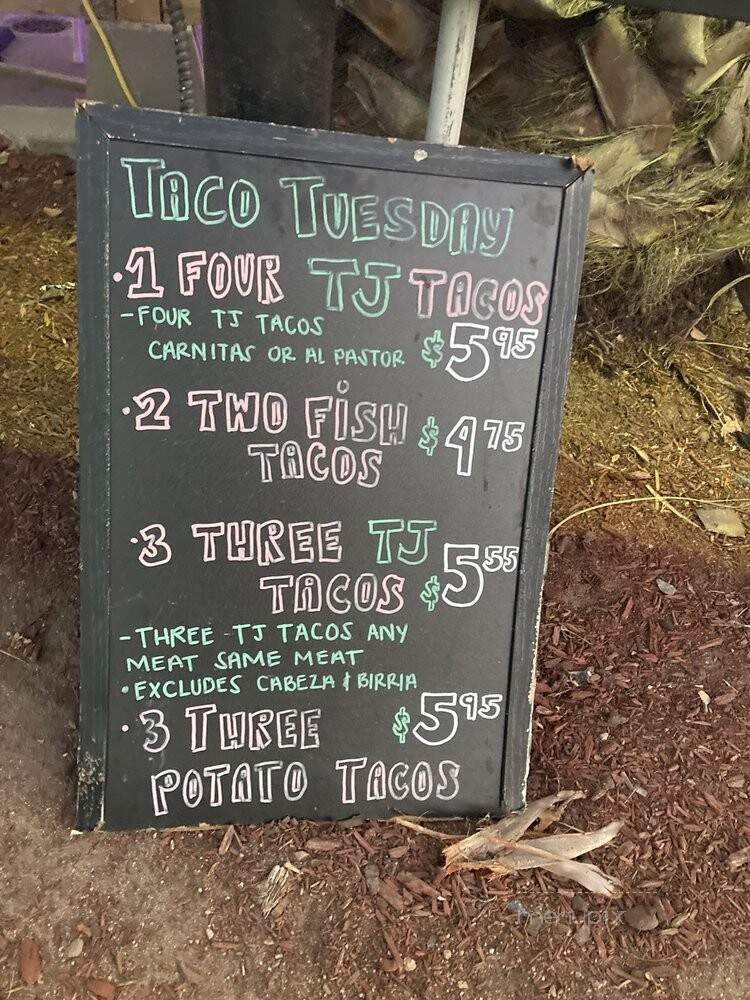 TACO TUESDAY
·1 FOUR TJ TACOS
-FOUR TJ TACOS
CARNITAS OR AL PASTOR $5 95
·2 TWO FISH $4 75
TACOS
·3 THREE TJ
TACOS $5 55
-THREE TJ TACOS ANY
MEAT SAME MEAT
·EXCLUDES CABEZA & BIRRIA
·3 THREE $5 95
POTATO TACOS
menupix